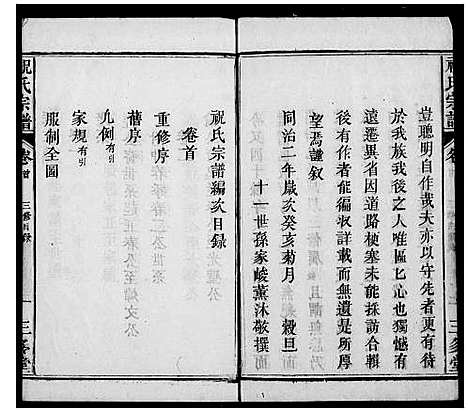 豈聰明自作哉夫亦以守先者更有待
於我族我後之人唯區區七心也獨憾有
遠遷異省因道路梗塞未能採訪合輯
後有作者偏收詳載而無遺是所厚
望焉謹敘
同治二年歲次癸亥菊月 穀旦
十一世孫家峻薰沐敬撰
祝氏宗譜
三多堂
祝氏宗譜編次目錄
卷首
重修序
舊序
凡例有引
家規有引
服制全圖
祝氏宗譜
卷首
三多堂